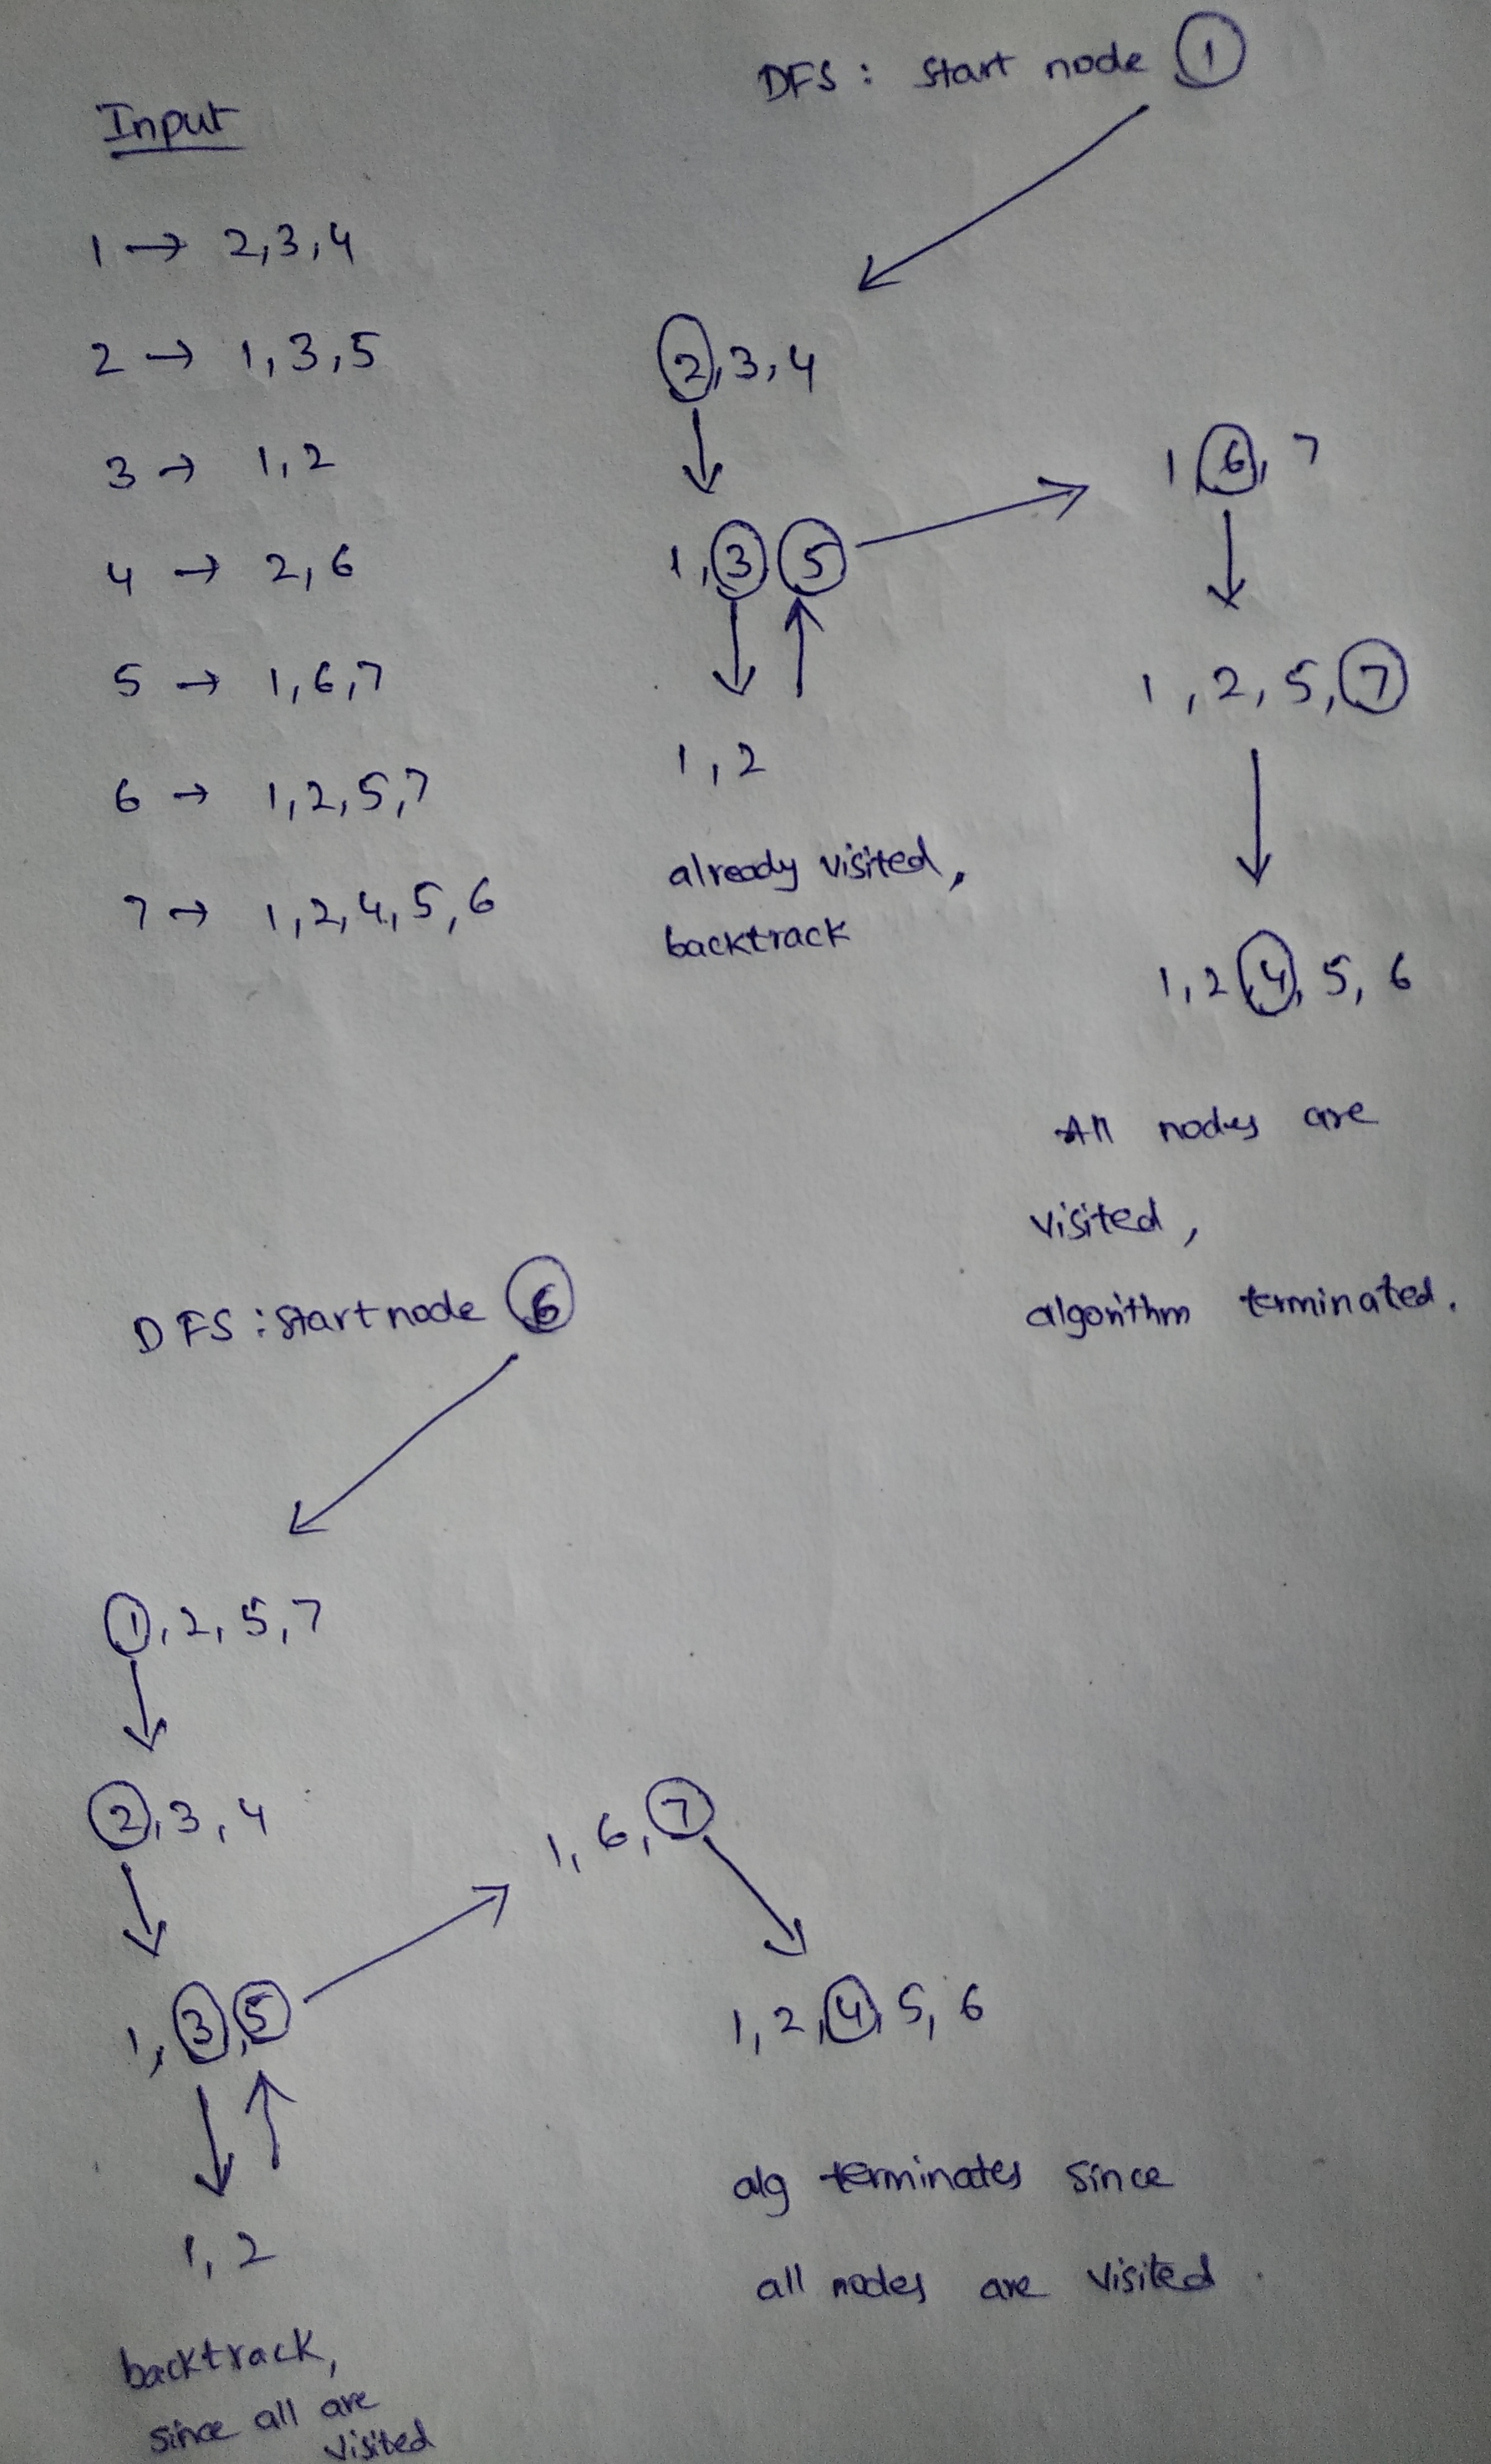 DFS: start node 1
Input
1 → 2,3,4
2 → 1,3,5
3 → 1,2
4 → 2,6
5 → 1,6,7
6 → 1,2,5,7
7 → 1,2,4,5,6
2,3,4
1,3 5
1,2
already visited,
backtrack
1 6, 7
1,2,5,7
1,2 4, 5, 6
All nodes are
visited,
algorithm terminated.
DFS: start node 6
1,2,5,7
2,3,4
1,3,5
1,2
backtrack,
since all are
visited
1,6,7
1,2,4,5,6
alg terminates since
all nodes are visited.